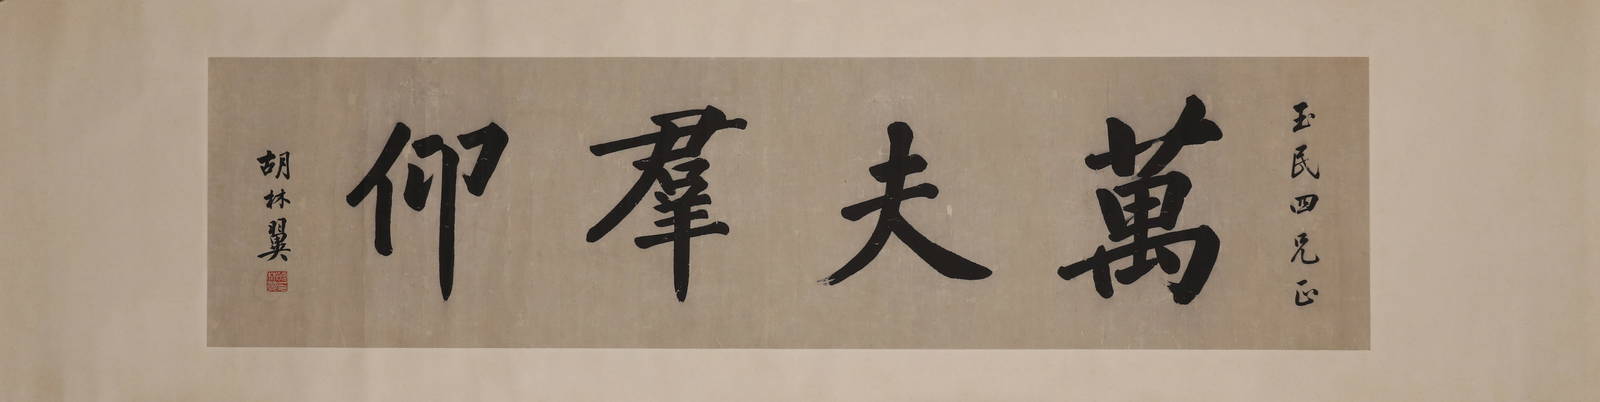 玉民四兄正
萬夫羣仰
胡林翼